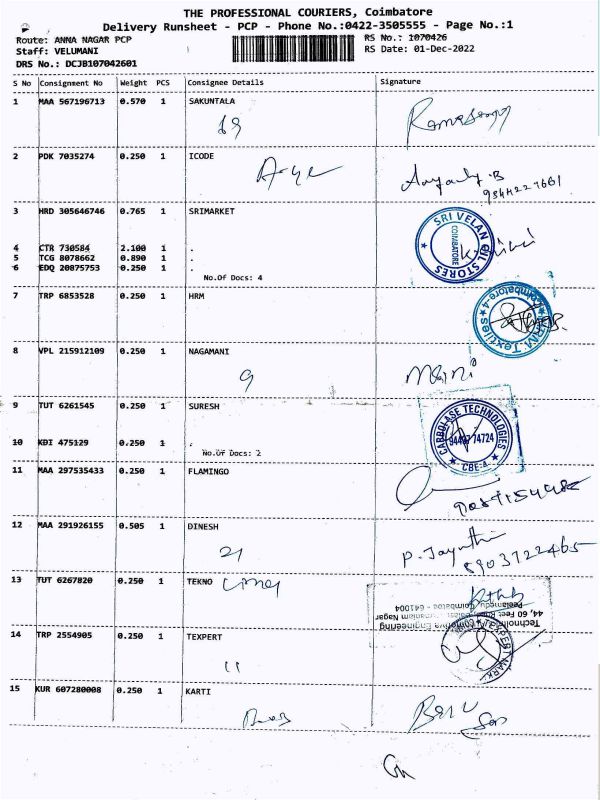 THE PROFESSIONAL COURIERS, Coimbatore
Delivery Runsheet - PCP - Phone No.:0422-3505555 - Page No.:1
Route: ANNA NAGAR PCP RS No.: 1070426
Staff: VELUMANI RS Date: 01-Dec-2022
DRS No.: DCJB107042601
S No Consignment No Weight PCS Consignee Details Signature
1 MAA 567196713 0.570 1 SAKUNTALA
2 PDK 7035274 0.250 1 ICODE
3 HRD 305646746 0.765 1 SRIMARKET
SRI VELAN OIL STORES
COIMBATORE
4 CTR 730584 2.100 1 .
5 TCG 8078662 0.890 1 .
6 EDQ 20875753 0.250 1 .
No.Of Docs: 4
7 TRP 6853528 0.250 1 HRM
HRM Textiles
Coimbatore-4
8 VPL 215912109 0.250 1 NAGAMANI
9
9 TUT 6261545 0.250 1 SURESH
CARBOLASE TECHNOLOGIES
74724
CBE-4
10 KDI 475129 0.250 1 .
No.Of Docs: 2
11 MAA 297535433 0.250 1 FLAMINGO
12 MAA 291926155 0.505 1 DINESH
21
P. Jayanthi
8903722465
13 TUT 6267820 0.250 1 TEKNO
Engineering
44, 60 Feet Road
Nagar
Peelamedu, Coimbatore - 641004
14 TRP 2554905 0.250 1 TEXPERT
11
TEXPERT MARK
15 KUR 607280008 0.250 1 KARTI